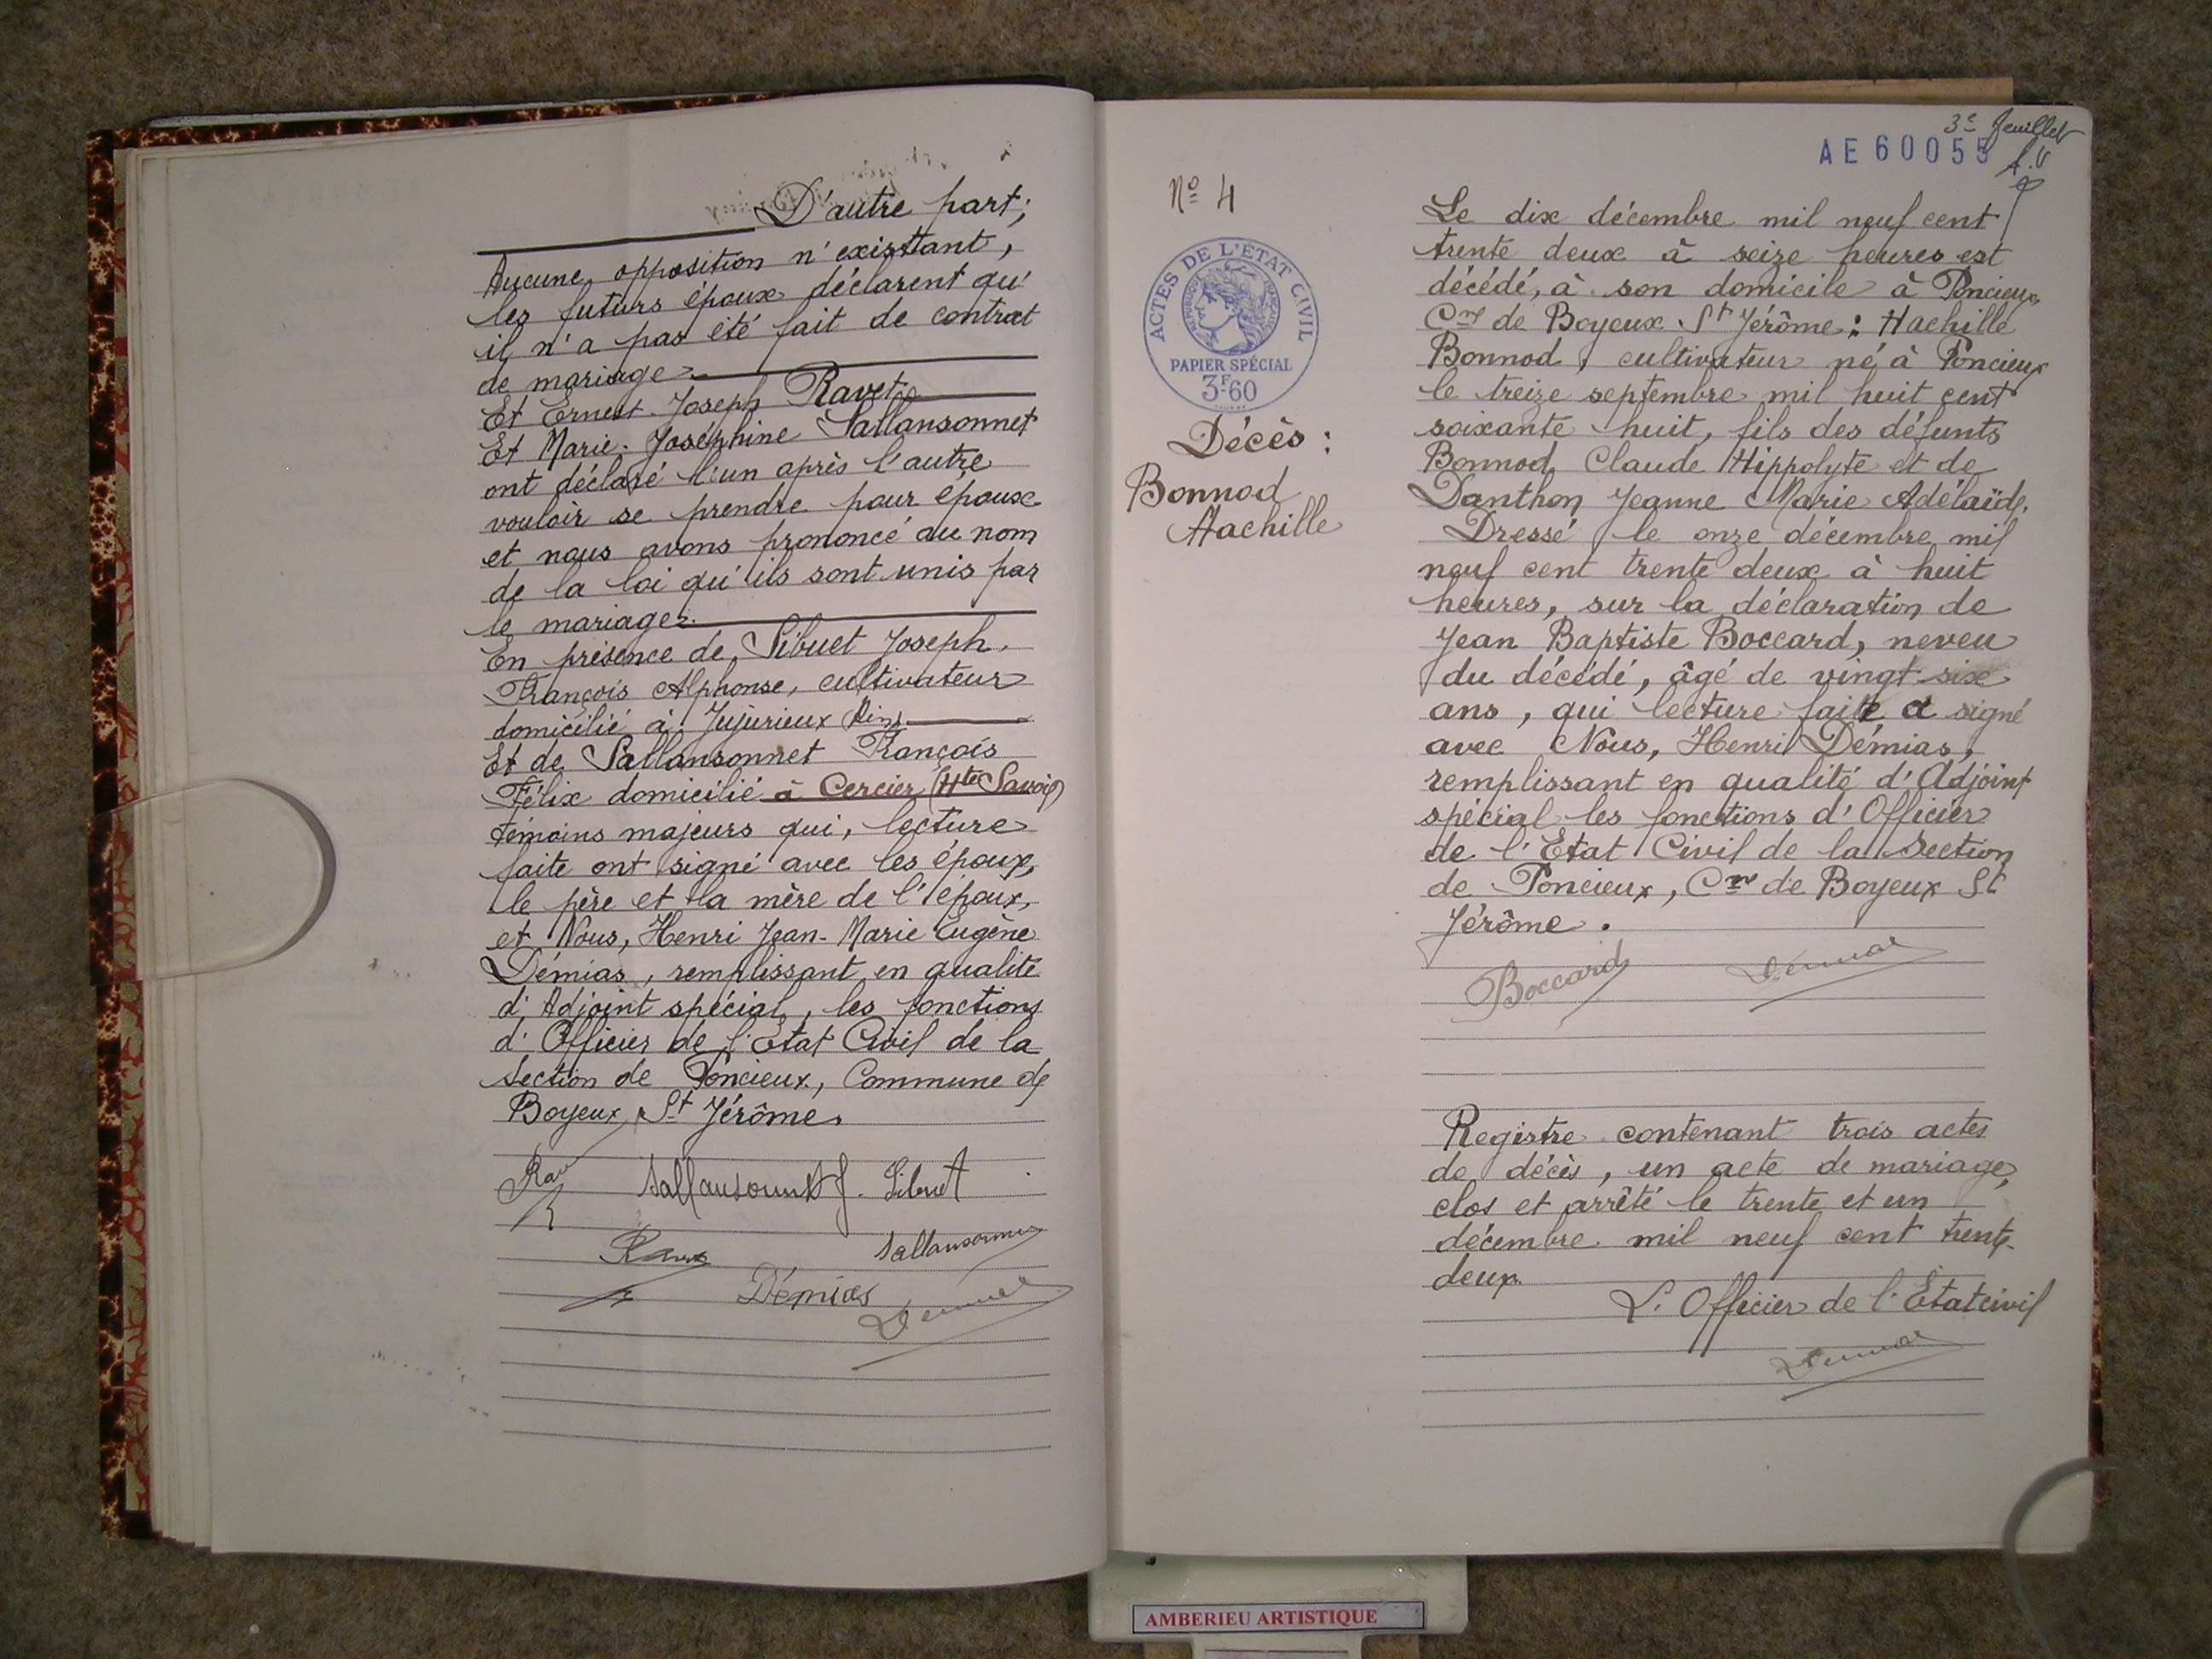 D'autre part;
Aucune opposition n'existtant,
les futurs époux déclarent qu'
il n'a pas été fait de contrat
de mariage.
Et Ernest Joseph Ravet
Et Marie. Joséphine Sallansonnet
ont déclaré l'un après l'autre
vouloir se prendre pour époux
et nous avons prononcé au nom
de la loi qu'ils sont unis par
le mariage.
En présence de Sibuet Joseph,
François Alphonse, cultivateur
domicilié à Jujurieux Ain
Et de Sallansonnet François
Félix domicilié à Cercier (Hte Savoie)
témoins majeurs qui, lecture
faite ont signé avec les époux,
le père et la mère de l'époux,
et Nous, Henri Jean-Marie Eugène
Démias, remplissant en qualité
d'Adjoint spécial, les fonctions
d'Officier de l'Etat Civil de la
section de Poncieux, Commune de
Boyeux St Jérôme.
Sallansonnet J. Sibuet
Sallansonnet
Démias
Démias
3e feuillet
AE60055
Nº 4
ACTES DE L'ÉTAT CIVIL
RÉPUBLIQUE FRANÇAISE
PAPIER SPÉCIAL
3F-60
Décès :
Bonnod
Hachille
Le dix décembre mil neuf cent
trente deux à seize heures est
décédé, à son domicile à Poncieux
Cne de Boyeux St Jérôme: Hachille
Bonnod, cultivateur né à Poncieux
le treize septembre mil huit cent
soixante huit, fils des défunts
Bonnod Claude Hippolyte et de
Danthon Jeanne Marie Adélaïde.
Dressé le onze décembre mil
neuf cent trente deux à huit
heures, sur la déclaration de
Jean Baptiste Boccard, neveu
du décédé, âgé de vingt six
ans, qui lecture faite a signé
avec Nous, Henri Démias,
remplissant en qualité d'Adjoint
spécial les fonctions d'Officier
de l'Etat Civil de la Section
de Poncieux, Cne de Boyeux St
Jérôme.
Boccard Démias
Registre contenant trois actes
de décès, un acte de mariage,
clos et arrêté le trente et un
décembre mil neuf cent trente-
deux.
L'Officier de l'Etat civil
Démias
AMBERIEU ARTISTIQUE